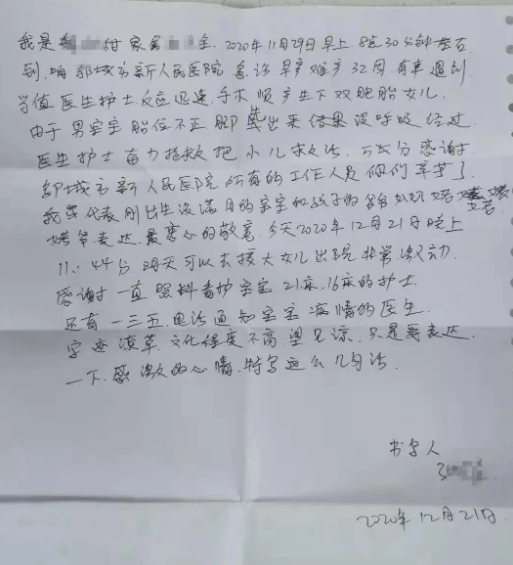 我是 甜家属 全.2020年11月29日早上8点30分钟左右
到.咱邹城市新人民医院急诊早产难产32周有幸遇到
当值医生护士反应迅速.手术顺产生下双胞胎女儿
由于男宝宝胎位不正脚 出来结果没呼吸经过
医生护士奋力抢救把小儿救活.万分感谢
邹城市新人民医院所有的工作人员你们辛苦了
我 代表刚出生没满月的宝宝和孩子的爷奶
爸.表达.最衷心的敬意.今天2020年12月21日晚上
11.44分.明天可以去接大女儿出院非常激动.
感谢一直照料看护宝宝21床.16床的护士.
还有一三五.电话通知宝宝病情的医生.
字迹潦草.文化程度不高.望见谅.只是要表达.
一下.感激的心情.特写这么几句话.
书写人
2020年12月21日.